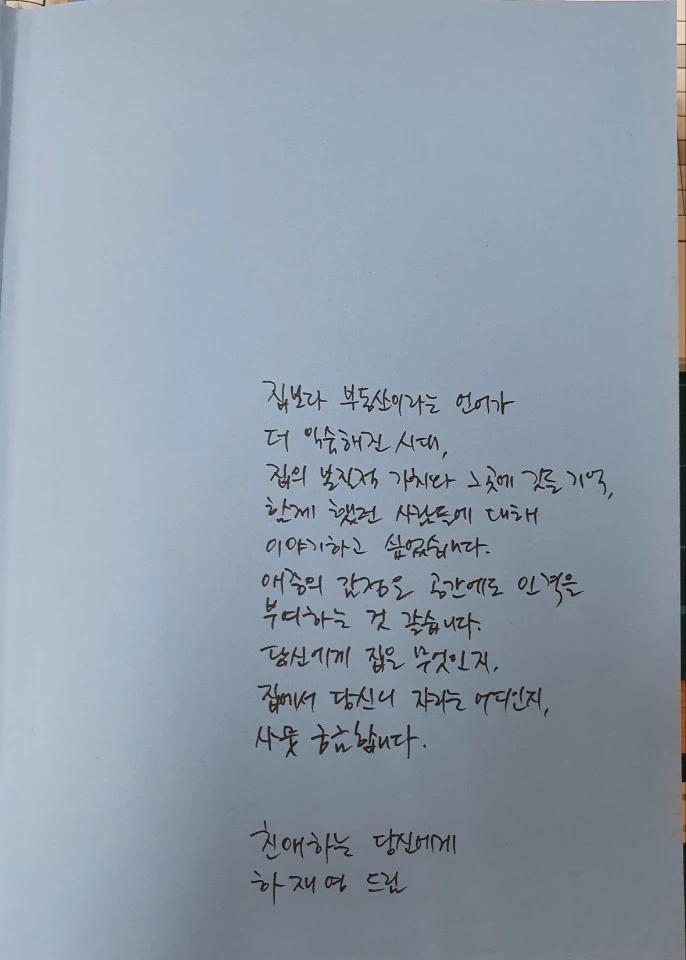 집보다 부동산이라는 언어가
더 익숙해진 시대,
집의 본질적 가치와 그곳에 깃든 기억,
함께 했던 사람들에 대해
이야기하고 싶었습니다.
애증의 감정은 공간에도 인격을
부여하는 것 같습니다.
당신에게 집은 무엇인지,
집에서 당신의 자리는 어디인지,
사뭇 궁금합니다.
친애하는 당신에게
하재영 드림